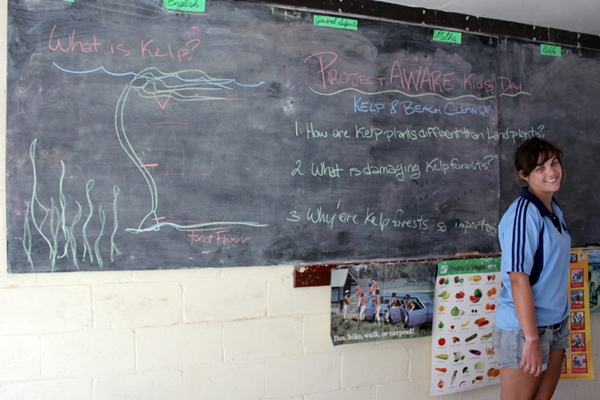 English
General Subject
Maths
Bible
What is Kelp?
Project AWARE Kids Day
KELP & BEACH CLEAN UP
1. How are Kelp plants different than Land plants?
2. What is damaging Kelp forests?
3 Why are Kelp forests so importan
forst Floor
Bus, bike, walk, or carpool!